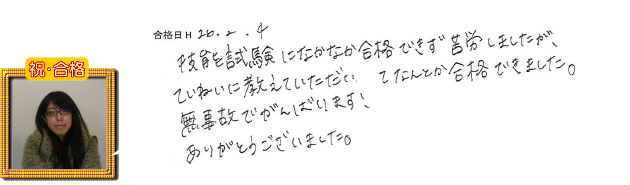 祝・合格
合格日 H 26.2.4
技能試験になかなか合格できず苦労しましたが、
ていねいに教えていただい てなんとか合格できました。
無事故でがんばります!
ありがとうございました。